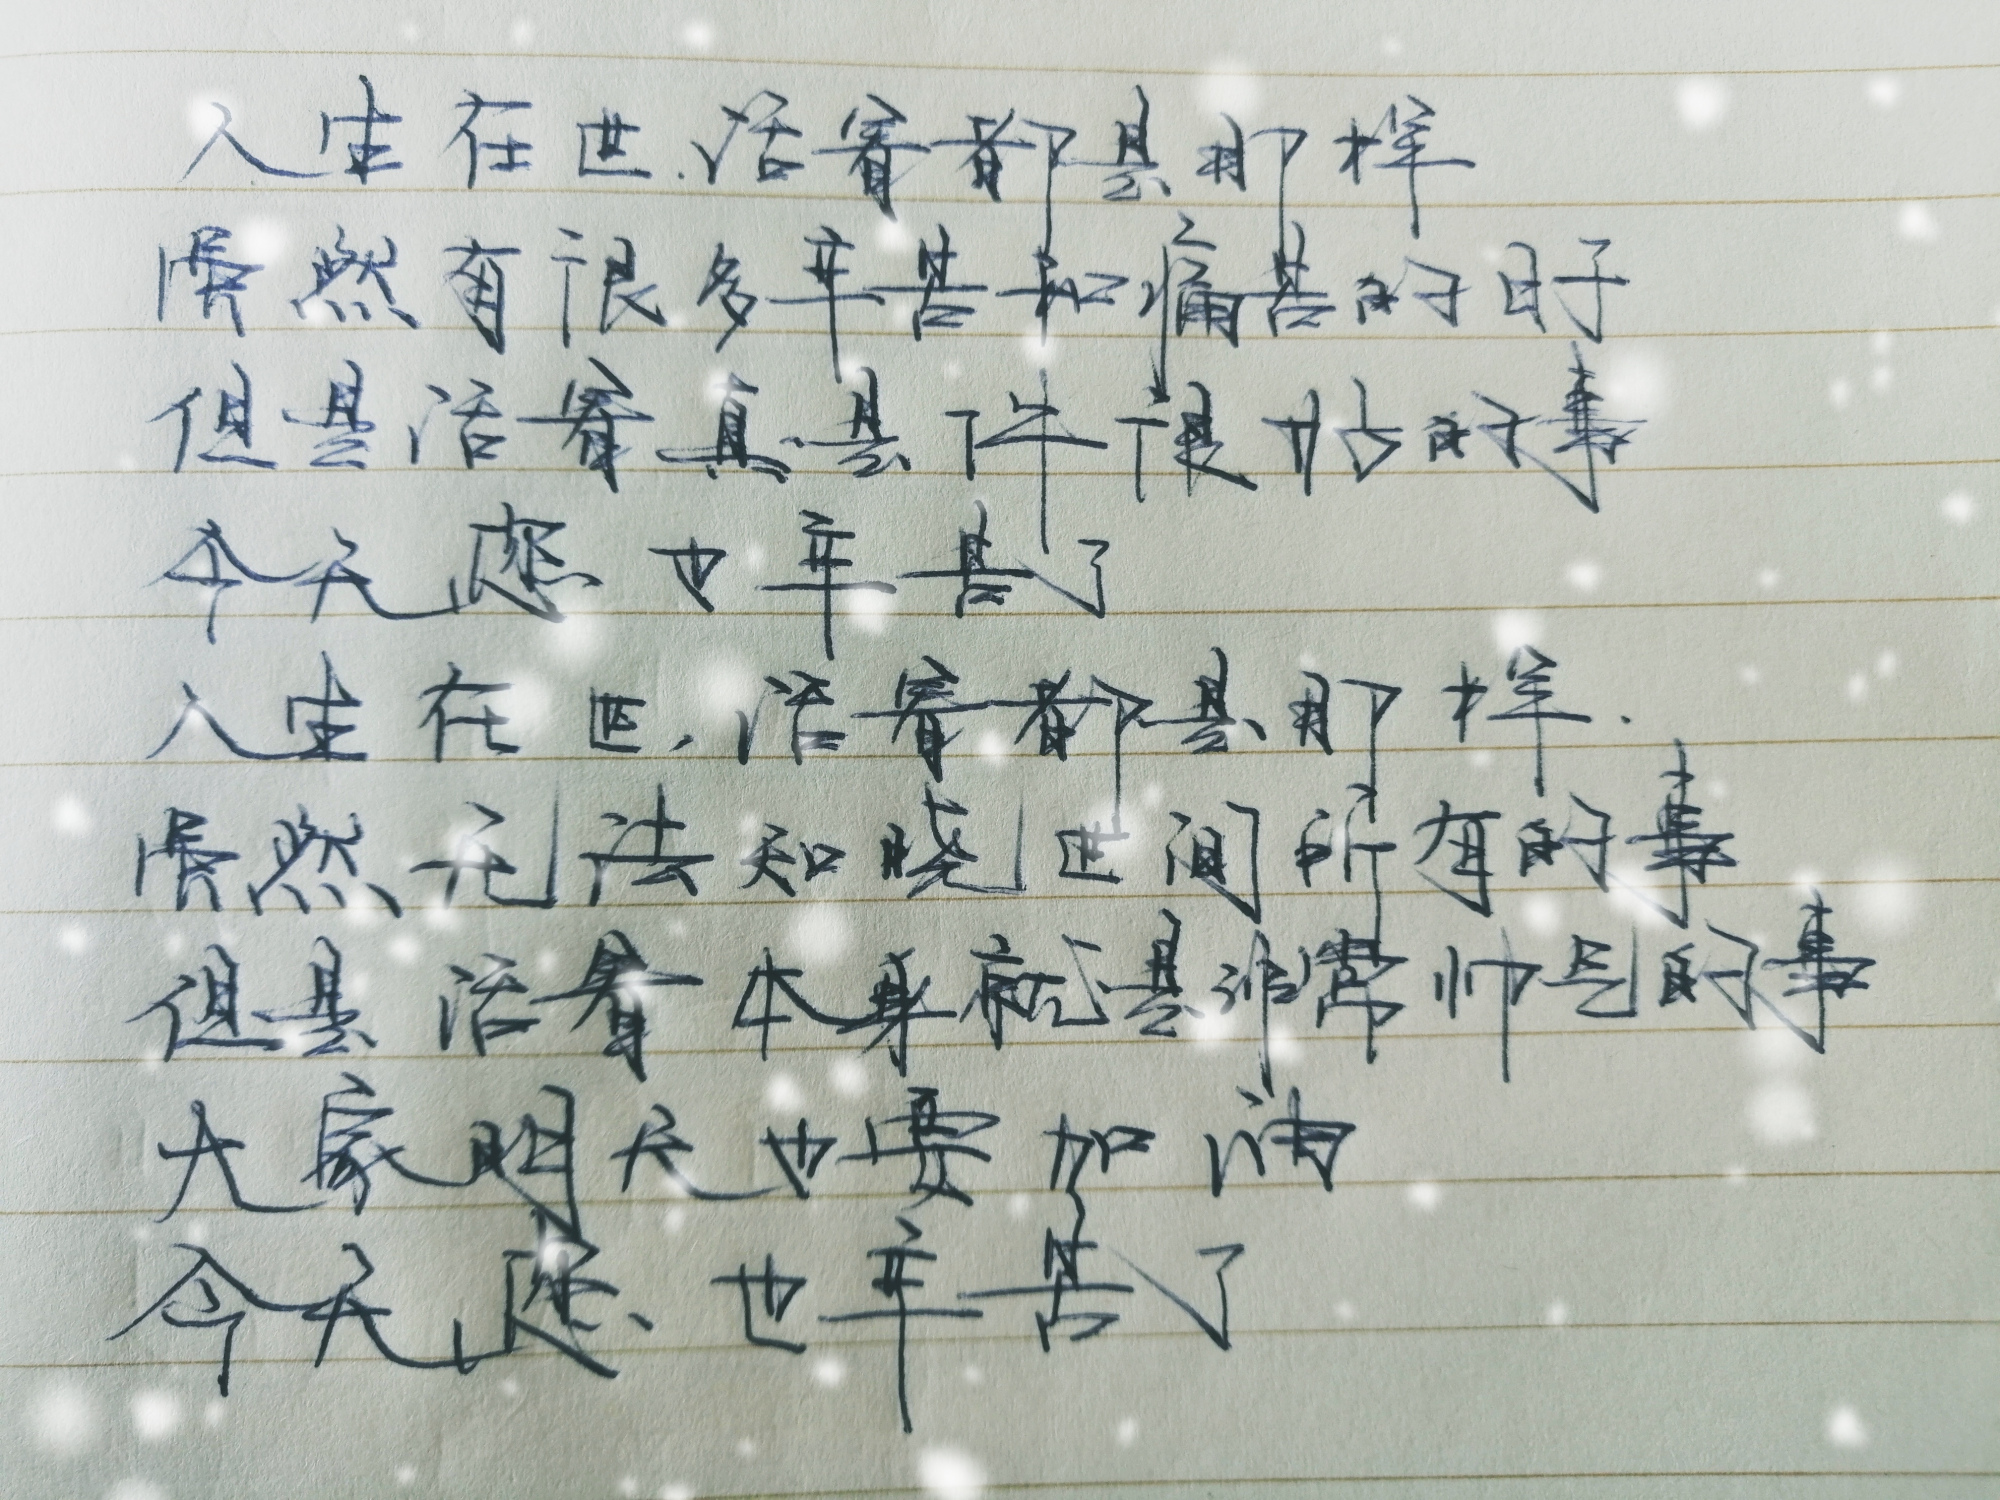 人生在世.活着都是那样
虽然有很多辛苦和痛苦的日子
但是活着真是件很好的事
今天您也辛苦了
人生在世,活着都是那样.
虽然无法知晓世间所有的事
但是活着本身就是非常帅气的事
大家明天也要加油
今天您也辛苦了